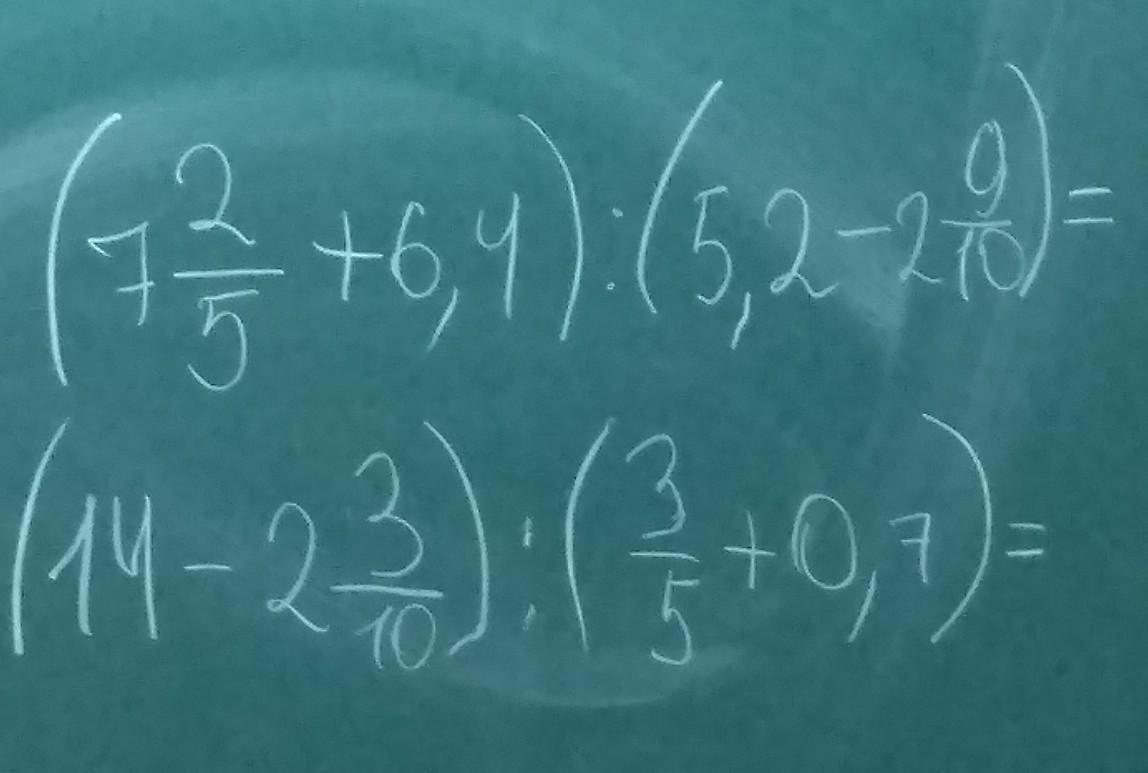 (7 2/5 + 6,4) : (5,2 - 2 9/10) =
(14 - 2 3/10) : (3/5 + 0,7) =